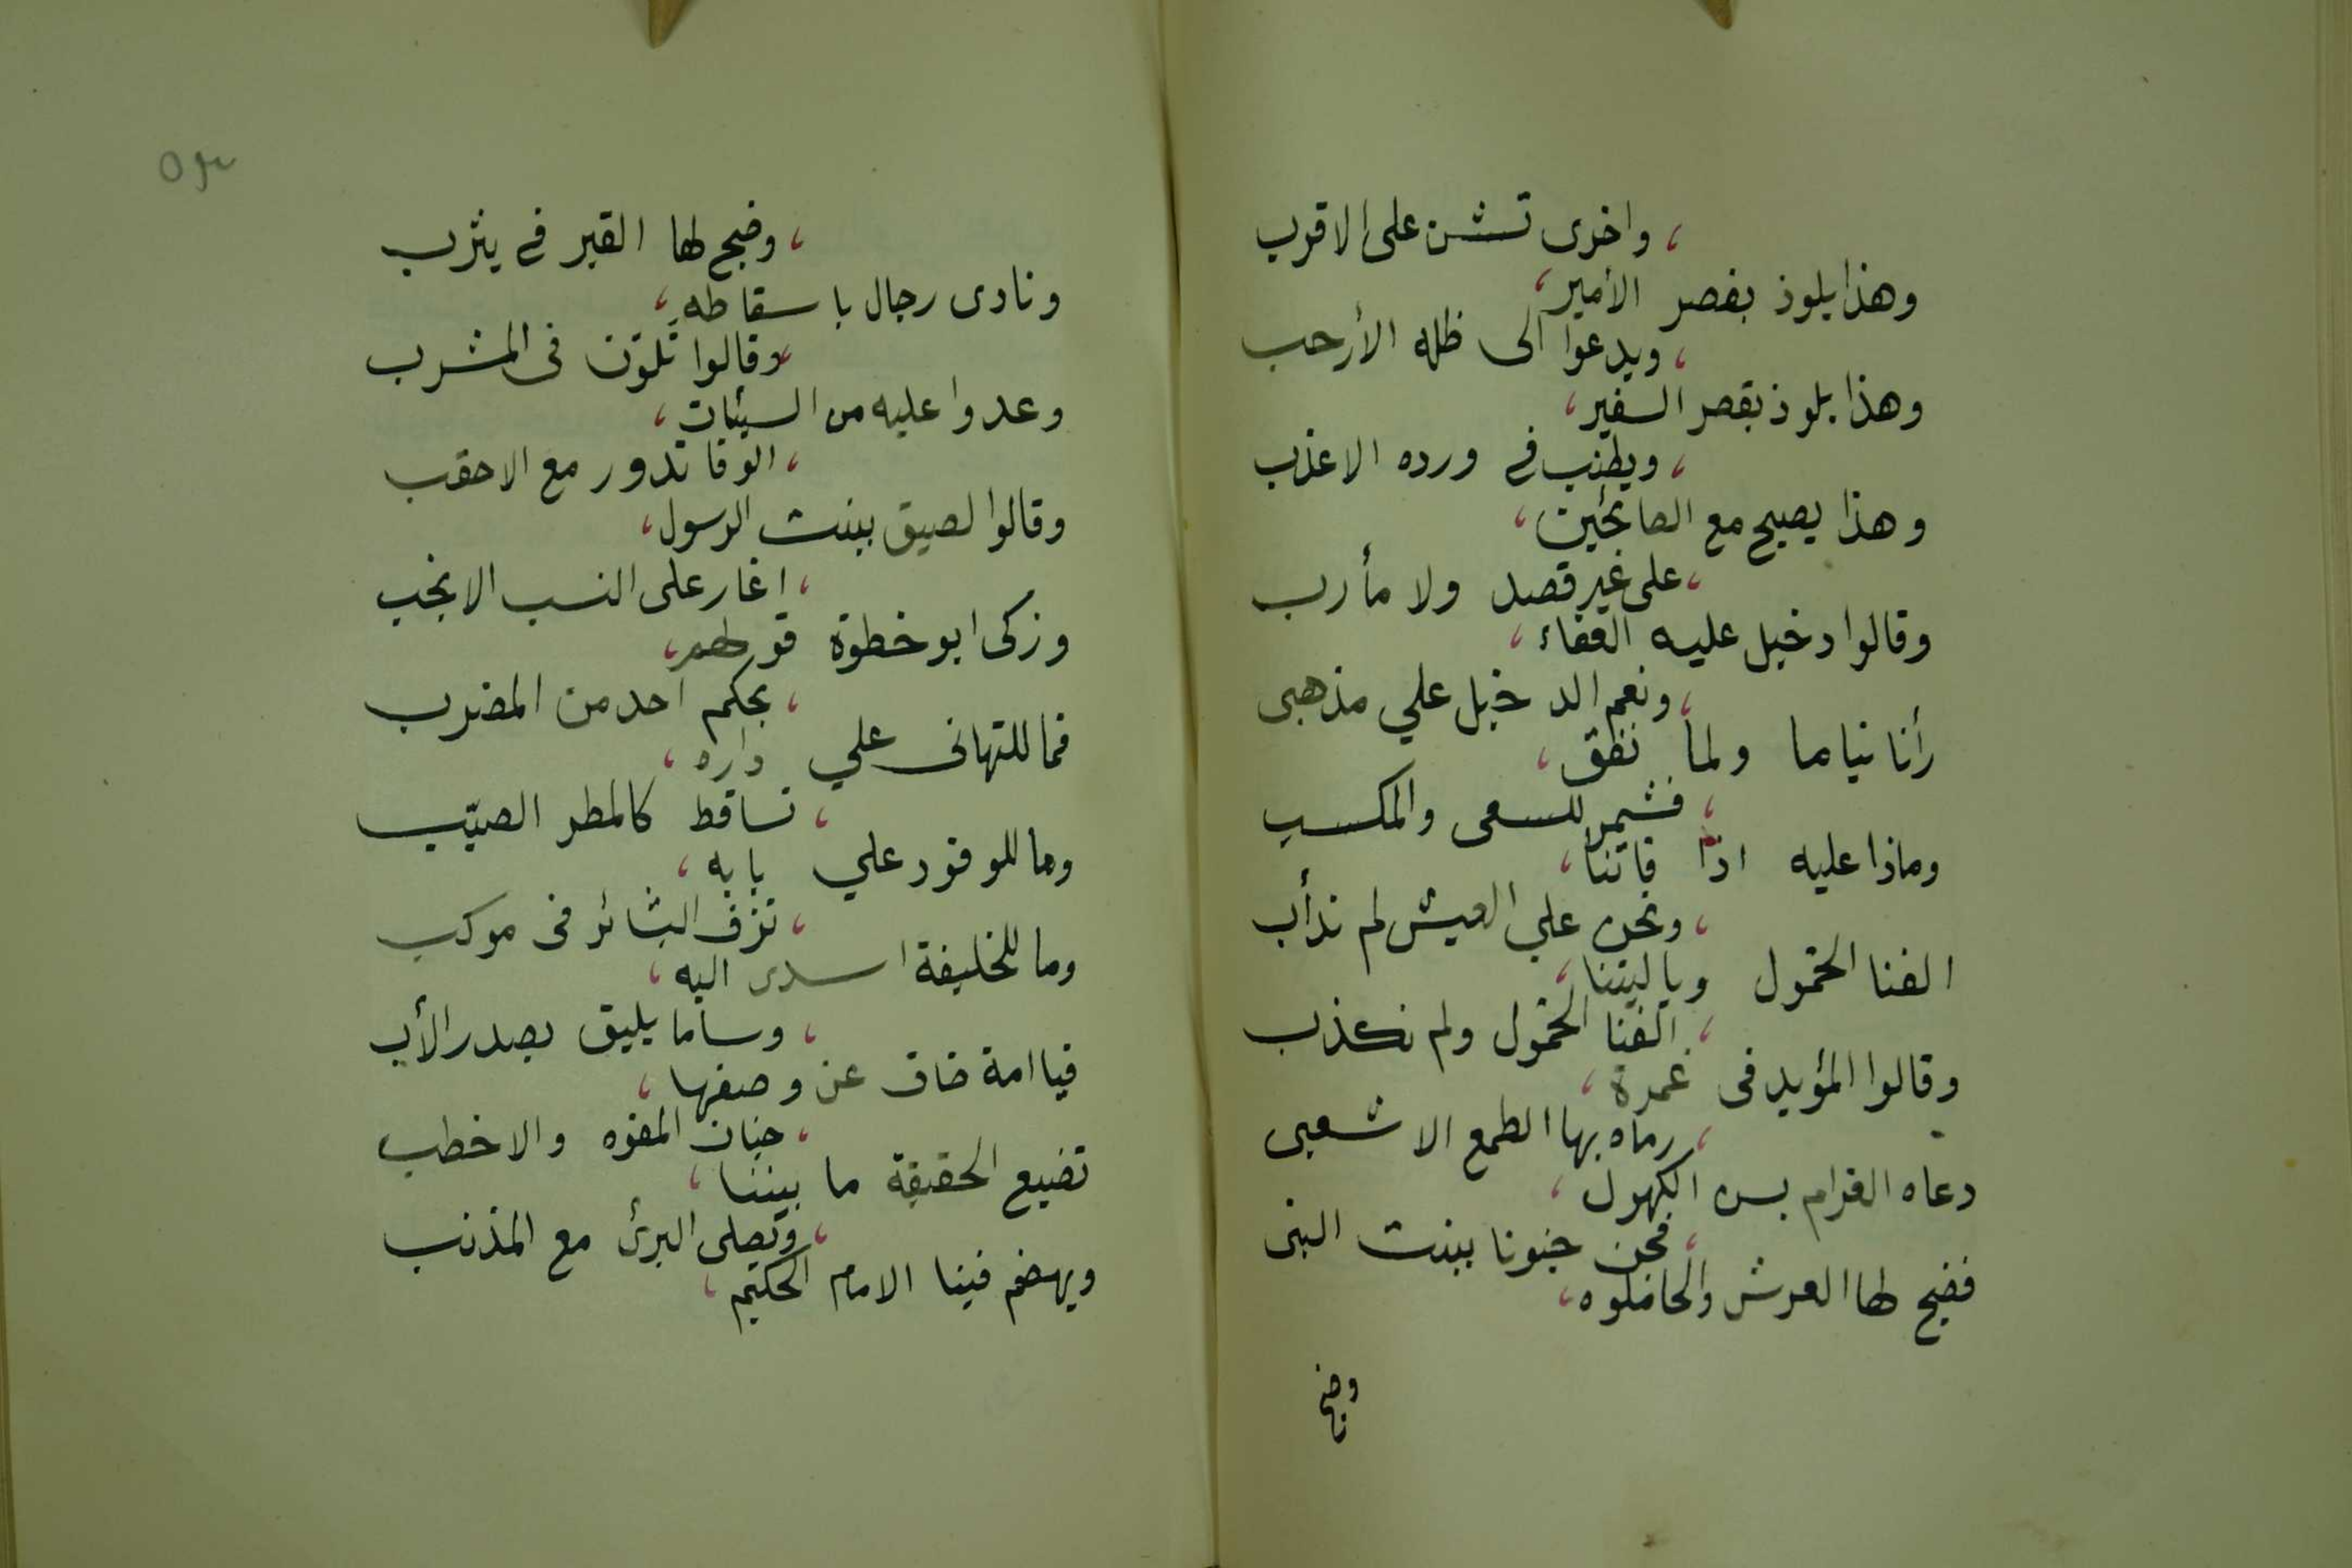 ، واخرى تشن على الاقرب
وهذا يلوذ بقصر الأمير،
، ويدعوا الى ظله الأرحب
وهذا يلوذ بقصر السفير،
، ويطنب في ورده الاعذب
وهذا يصيح مع الصائحين،
، على غير قصد ولا مأرب
وقالوا دخيل عليه العفاء،
، ونعم الدخيل علي مذهبى
رأنا نياما ولما نفق،
، فشمر للسعى والمكسب
وماذا عليه اذا فاتنا،
، ونحن علي العيش لم ندأب
الفنا الخمول وياليتنا،
، الفنا الخمول ولم نكذب
وقالوا المؤيد فى غمرة،
، رماه بها الطمع الاشعبى
دعاه الغرام بسن الكهول،
، فجن جنونا ببنت النبى
فضج لها العرش والحاملوه،
وضج
٥٣
، وضج لها القبر في يثرب
ونادى رجال باسقاطه،
، وقالوا تلون فى المشرب
وعدوا عليه من السيئات،
، الوفا تدور مع الاحقب
وقالوا لصيق ببنت الرسول،
، اغار على النسب الانجب
وزكى ابو خطوة قولهم،
، بحكم احد من المضرب
فما للتهانى علي داره،
، تساقط كالمطر الصيّب
وما للوفود علي بابه،
، تزف البشائر فى موكب
وما للخليفة اسدى اليه،
، وساما يليق بصدر الأبي
فيا امة ضاق عن وصفها،
، جنان المفوه والاخطب
تضيع الحقيقة ما بيننا،
، وتصلى البرئ مع المذنب
ويهضم فينا الامام الحكيم،